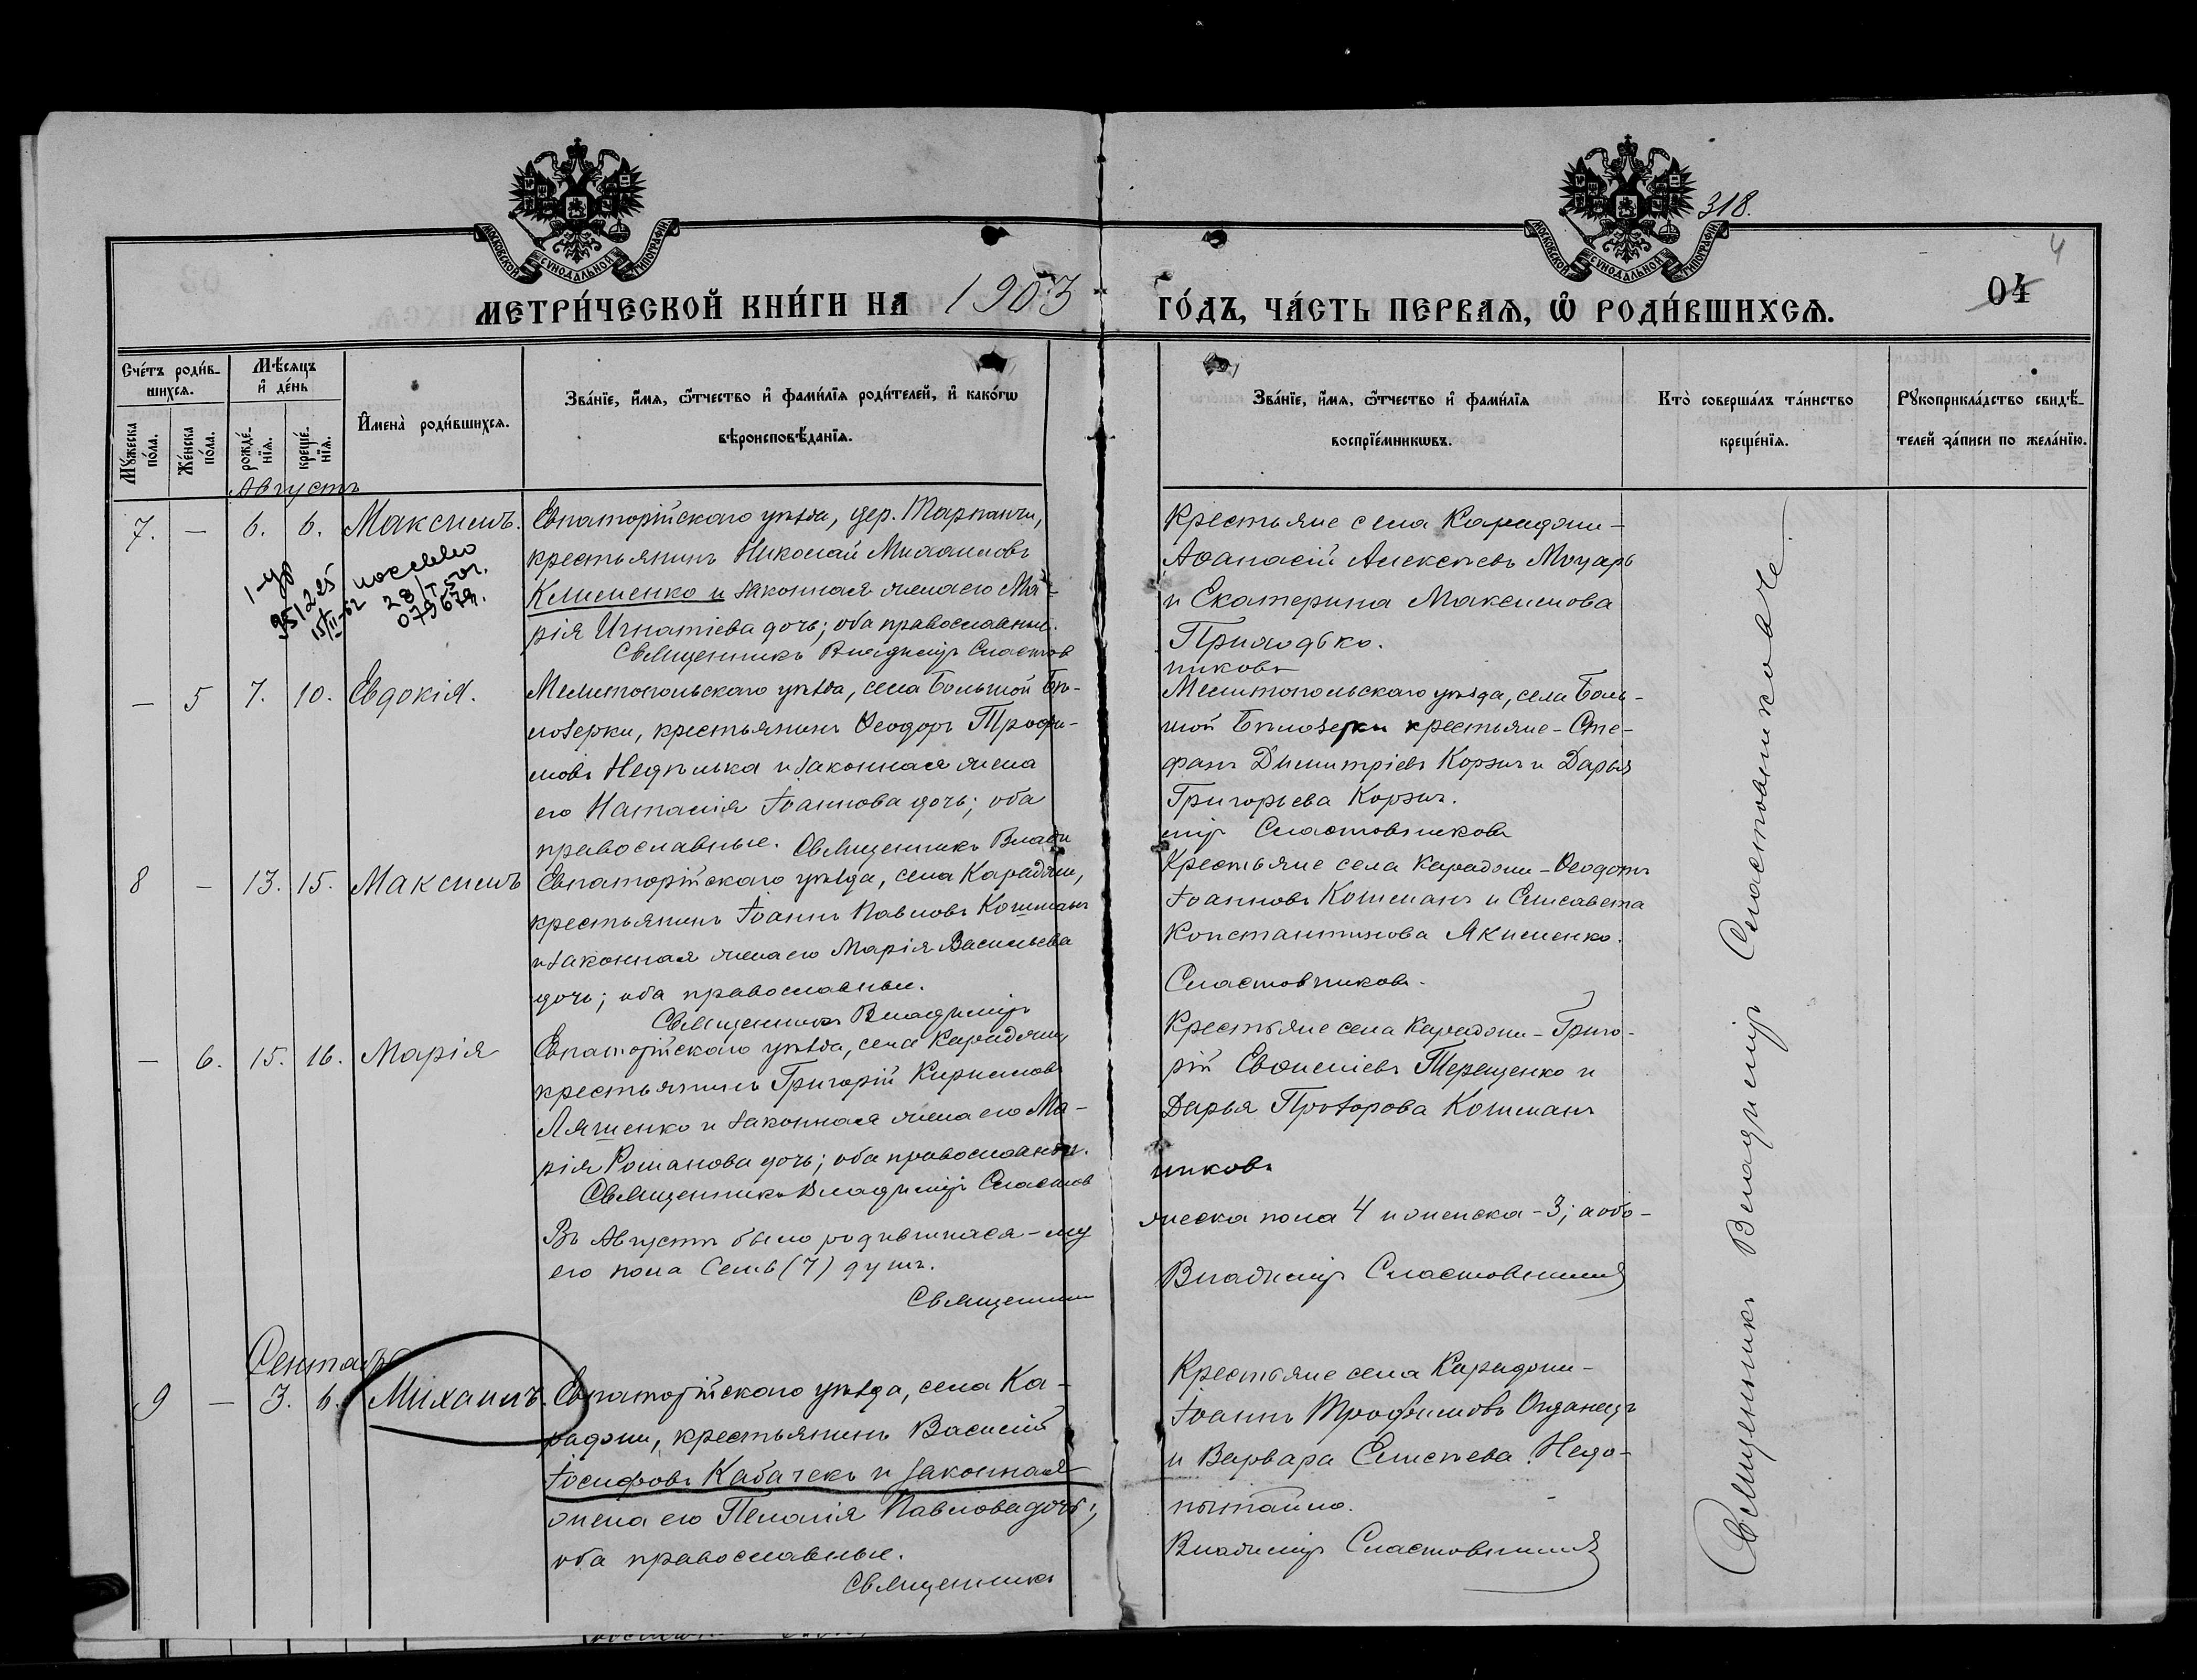 318.
4
04
МОСКОВСКОЙ СУНОДАЛЬНОЙ ТИПОГРАФІИ
МОСКОВСКОЙ СУНОДАЛЬНОЙ ТИПОГРАФІИ
МЕТРИ́ЧЕСКОЙ КНИ́ГИ НА 1903
ГО́ДЪ, ЧА́СТЬ ПЕРВАѦ, Ѽ РОДИ́ВШИХСѦ.
Сче́тъ роди́в-
шихсѧ.
Мꙋ́жеска по́ла.
Же́нска по́ла.
Мѣ́сѧцъ
и҆ де́нь
рожде́-
нїѧ.
креще́-
нїѧ.
И҆мена̀ роди́вшихсѧ.
Зва́нїе, и҆́мѧ, ѻ҆́тчество и҆ фами́лїѧ роди́телей, и҆ како́гѡ
вѣроисповѣ́данїѧ.
Зва́нїе, и҆́мѧ, ѻ҆́тчество и҆ фами́лїѧ
воспрїе́мникѡвъ.
Кто̀ соверша́лъ та́инство
креще́нїѧ.
Рꙋкоприкла́дство свидѣ́-
телей за́писи по жела́нїю.
Августъ
7. — 6. 6. Максимъ.
Евпаторійскаго уѣзда, дер. Тарпанчи,
крестьянинъ Николай Михаиловъ
Клименко и законная жена его Ма-
рія Игнатіева дочь; оба православные.
Священникъ Владиміръ Сластов
Крестьяне села Караджи-
Аѳанасій Алексѣевъ Моцарь
и Екатерина Максимова
Приходько.
никовъ
28/I 50г.
079679.
— 5 7. 10. Евдокія.
Мелитопольскаго уѣзда, села Большой Бѣ-
лозерки, крестьянинъ Ѳеодоръ Трофи-
мовъ Недѣлька и законная жена
его Наталія Іоаннова дочь; оба
православные. Священникъ Влади
Мелитопольскаго уѣзда, села Боль-
шой Бѣлозерки крестьяне - Сте-
фанъ Димитріевъ Коржъ и Дарья
Григорьева Коржъ.
міръ Сластовниковъ
8 — 13. 15. Максимъ
Евпаторійскаго уѣзда, села Караджи,
крестьянинъ Іоаннъ Павловъ Кошманъ
и законная жена его Марія Васильева
дочь; оба православные.
Священникъ Владиміръ
Крестьяне села Караджи - Ѳеодотъ
Іоанновъ Кошманъ и Елисавета
Константинова Якименко.
Сластовниковъ.
— 6. 15. 16. Марія
Евпаторійскаго уѣзда, села Караджи,
крестьянинъ Григорій Кирилловъ
Ляшенко и законная жена его Ма-
рія Романова дочь; оба православные.
Священникъ Владиміръ Сластов
Крестьяне села Караджи - Григо-
рій Евѳиміевъ Терещенко и
Дарья Прозорова Кошманъ
никовъ
Въ Августѣ было родившихся - му
жеска пола 4 и женска - 3; а обо-
его пола Семь (7) душъ.
Священник
Владиміръ Сластовников
Сентябрь
9 — 3. 6. Михаилъ.
Евпаторійскаго уѣзда, села Ка-
раджи, крестьянинъ Василій
Іосифовъ Кабачекъ и законная
жена его Пелагія Павлова дочь;
оба православные.
Священникъ
Крестьяне села Караджи-
Іоаннъ Трофимовъ Оӷданецъ
и Варвара Елисѣева Недо-
пытайло.
Владиміръ Сластовников
Священникъ Владиміръ Сластовниковъ